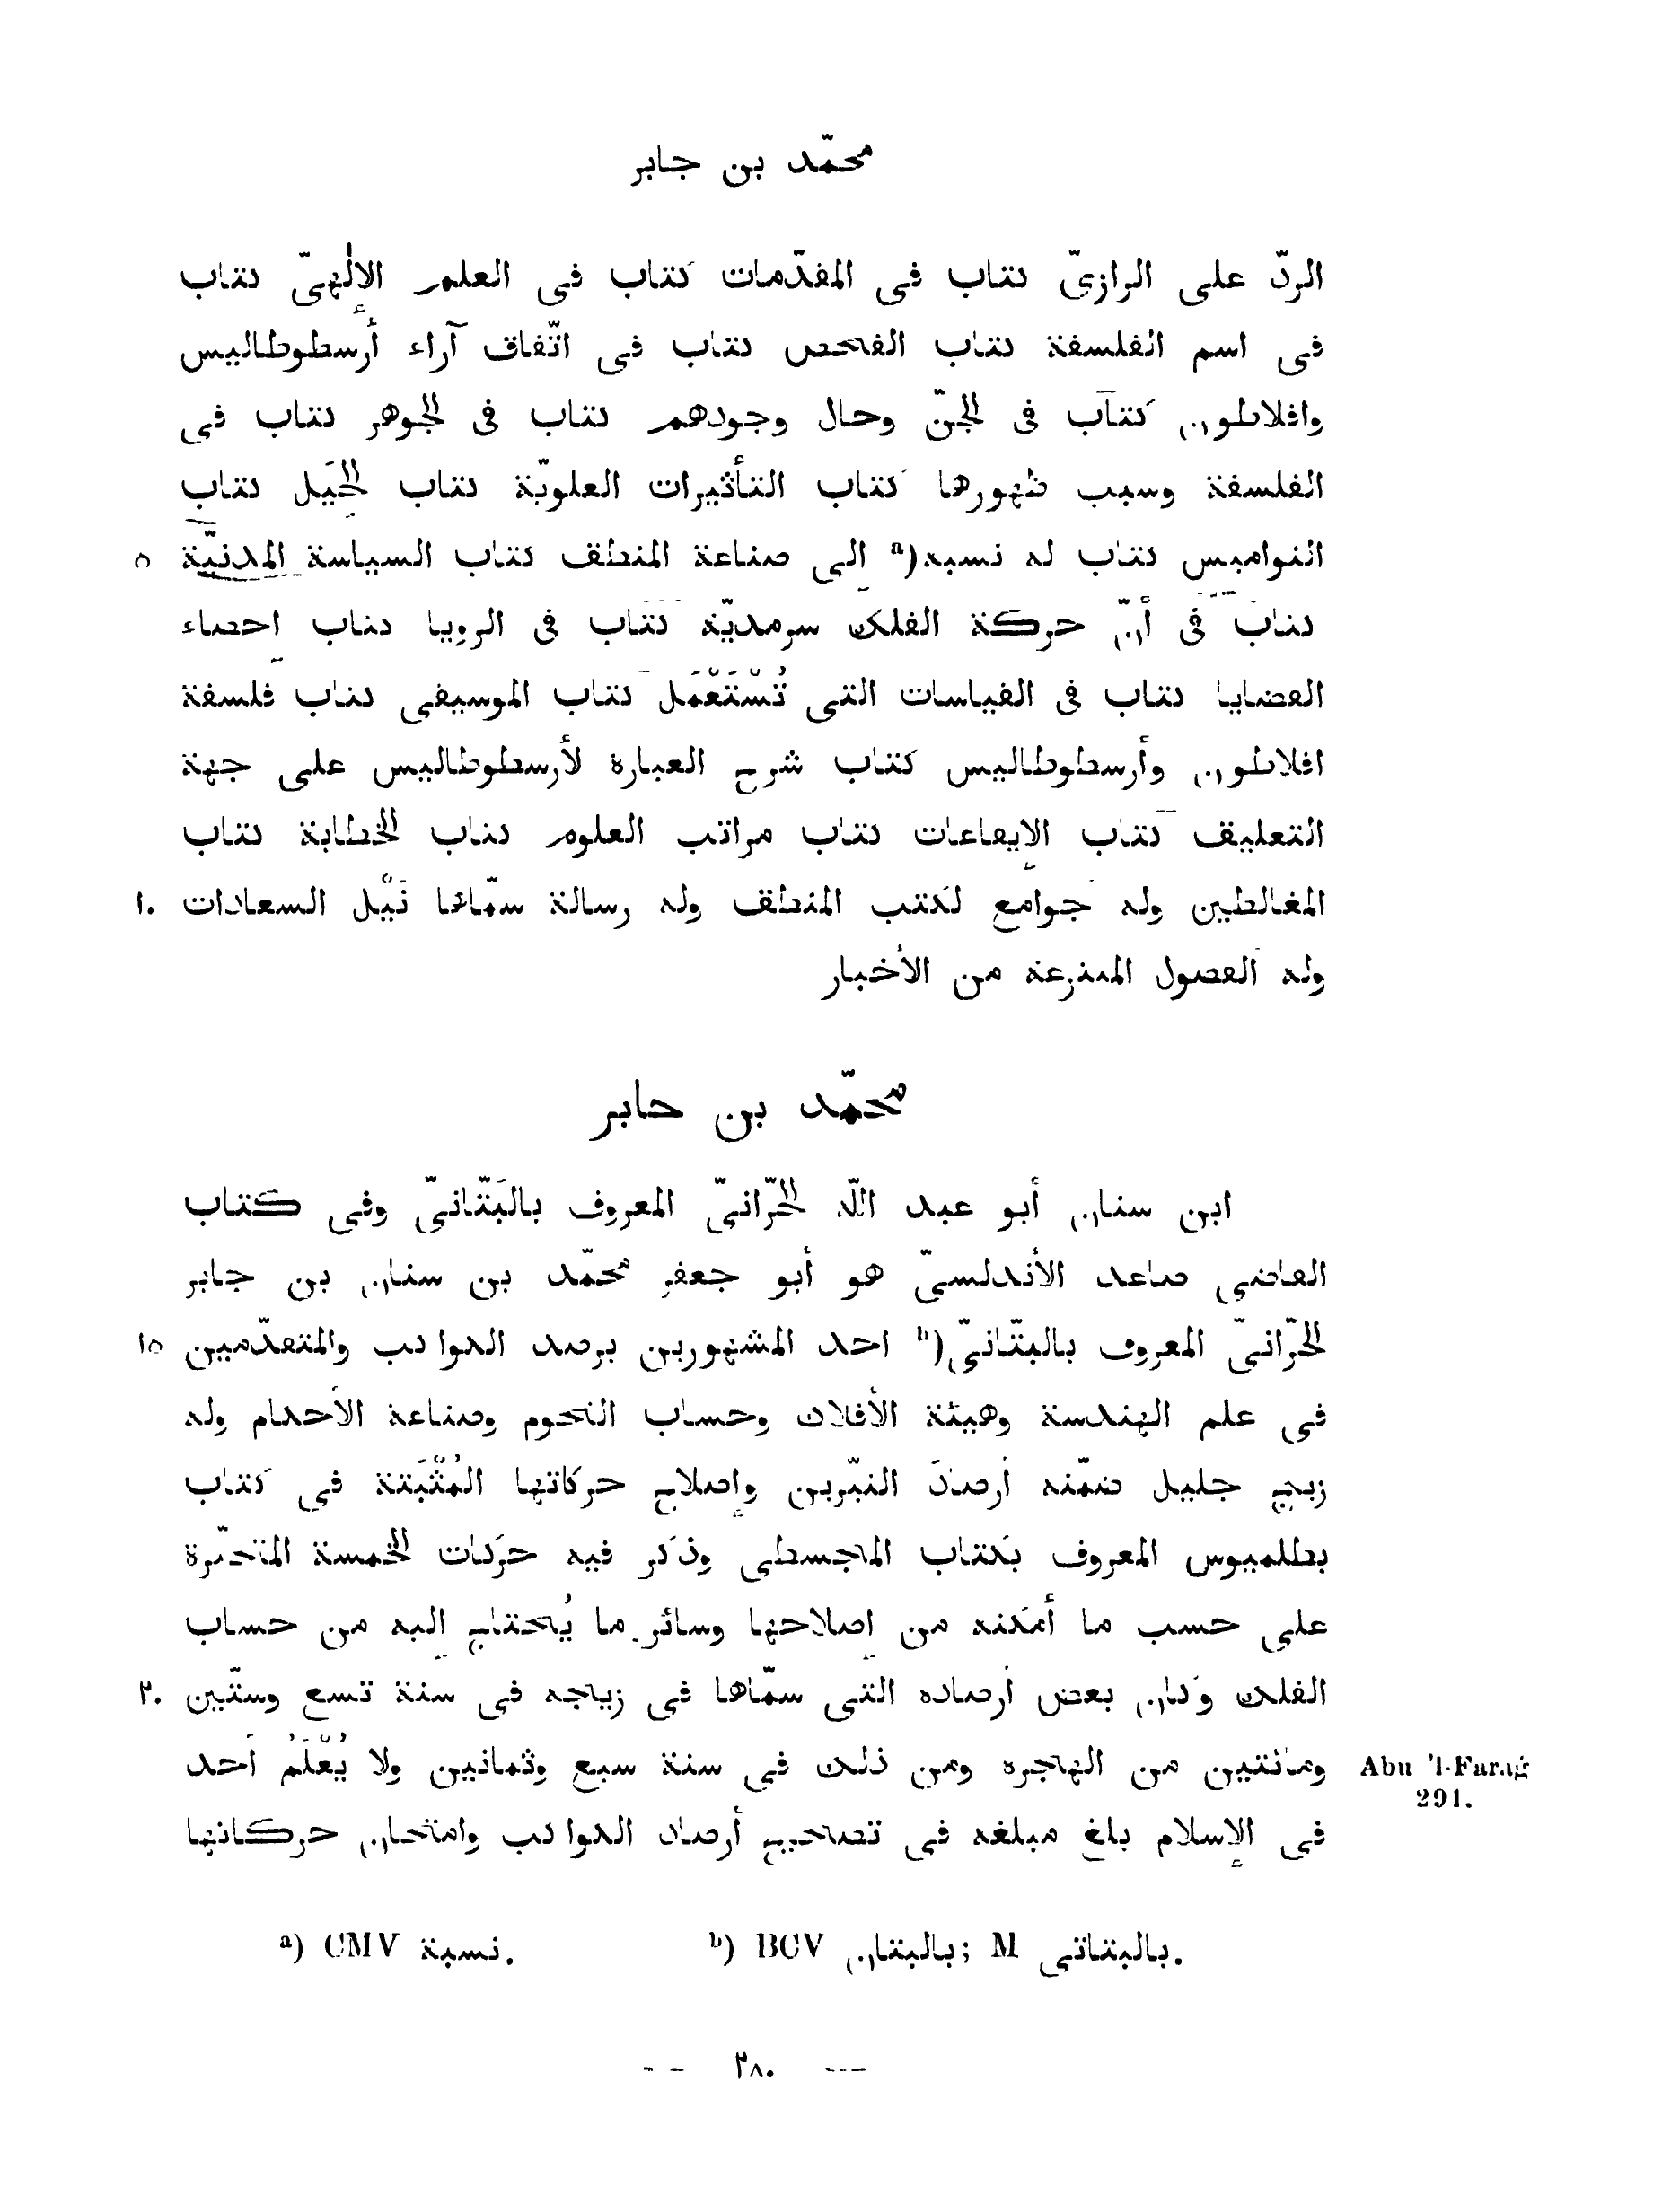 محمّد بن جابر
الردّ على الرازىّ كتاب فى المقدّمات كتاب فى العلم الإلٰهىّ كتاب
فى اسم الفلسفة كتاب الفحص كتاب فى اتّفاق آراء أرسطوطاليس
وافلاطون كتاب فى الجنّ وحال وجودهم كتاب فى الجوهر كتاب فى
الفلسفة وسبب ظهورها كتاب التأثيرات العلويّة كتاب الحِيَل كتاب
النواميس كتاب له نسبه(a إلى صناعة المنطق كتاب السياسة المدنيّة ٥
كتاب فى أنّ حركة الفلك سرمديّة كتاب فى الرويا كتاب احصاء
القضايا كتاب فى القياسات التى تُسْتَعْمَل كتاب الموسيقى كتاب فلسفة
افلاطون وأرسطوطاليس كتاب شرح العبارة لأرسطوطاليس على جهة
التعليق كتاب الإيقاعات كتاب مراتب العلوم كتاب الخطابة كتاب
المغالطين وله جوامع لكتب المنطق وله رسالة سمّاها نَيْل السعادات ١٠
وله الفصول المنتزعة من الأخبار
محمّد بن جابر
ابن سنان أبو عبد اللّه الحرّانىّ المعروف بالبَتّانىّ وفى كتاب
القاضى صاعد الأندلسىّ هو أبو جعفر محمّد بن سنان بن جابر
الحرّانىّ المعروف بالبتّانىّ(b احد المشهورين برصد الكواكب والمتقدّمين ١٥
فى علم الهندسة وهيئة الأفلاك وحساب النجوم وصناعة الأحكام وله
زيج جليل ضمّنه أرصاد النيّرين وإصلاح حركاتها المُثْبَتة فى كتاب
بطلميوس المعروف بكتاب المجسطى وذكر فيه حركات الخمسة المتحيّرة
على حسب ما أمكنه من إصلاحها وسائر ما يُحتاج إليه من حساب
الفلك وكان بعض أرصاده التى سمّاها فى زيجه فى سنة تسع وستّين ٢٠
ومائتين من الهجره ومن ذلك فى سنة سبع وثمانين ولا يُعْلَمُ أحد Abu 'l-Farağ
291.
فى الإسلام بلغ مبلغه فى تصحيح أرصاد الكواكب وامتحان حركاتها
a) CMV نسبة. b) BCV بالبتان; M بالبتاتى.
— ٢٨٠ —